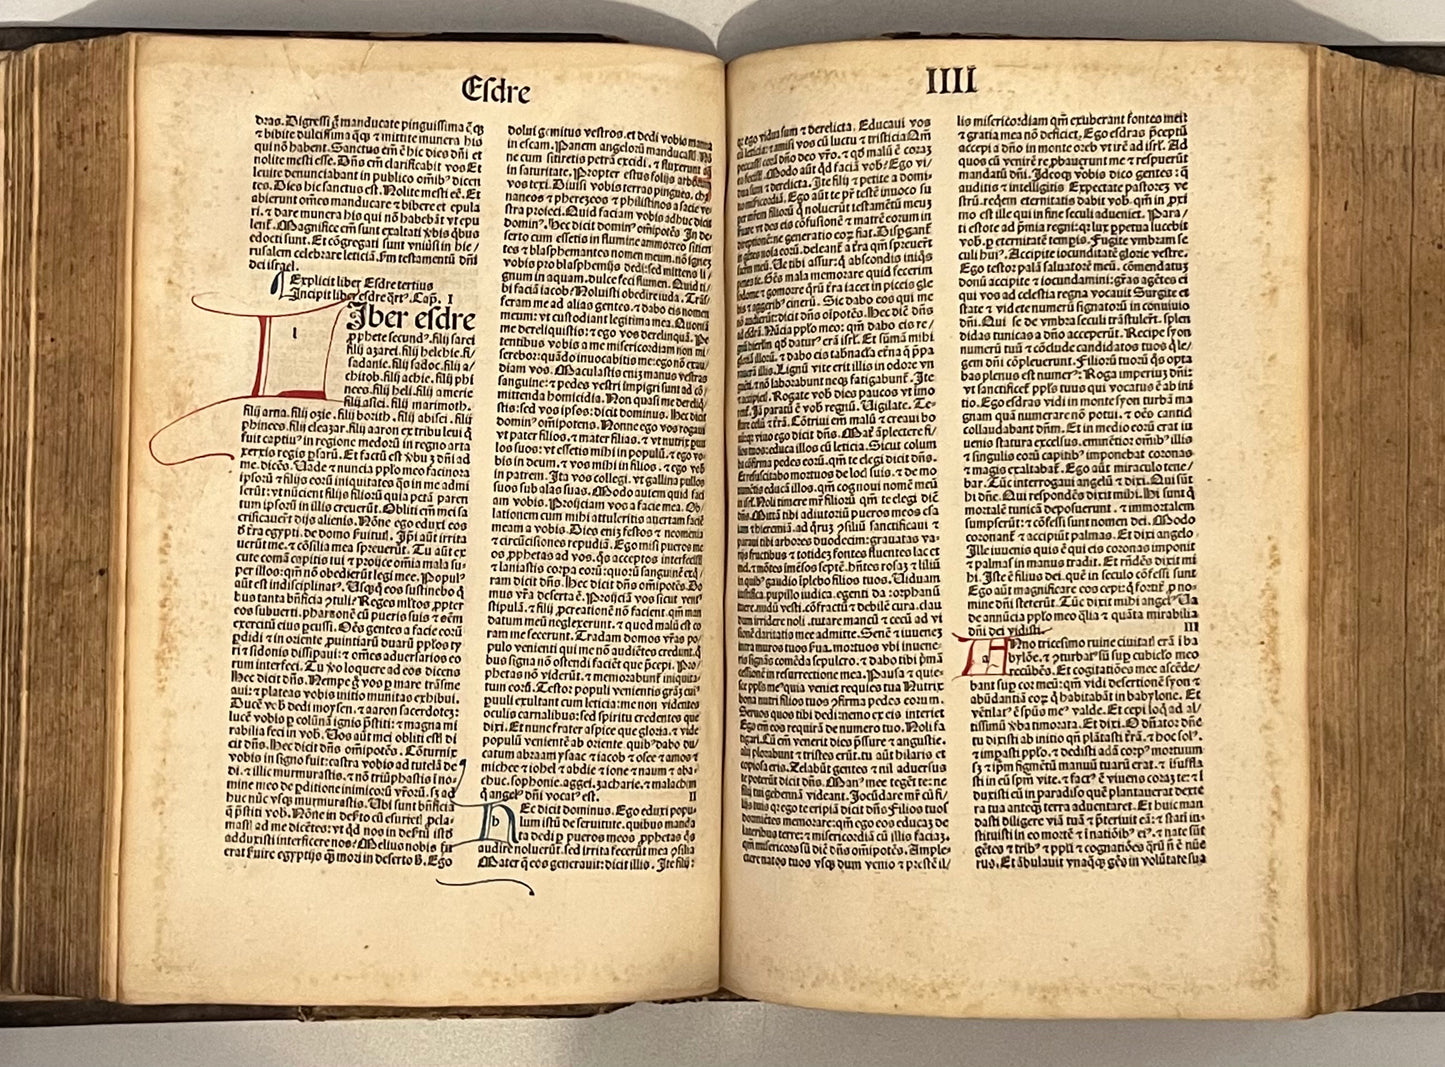 Esdre
dras. Digressi g̃ manducate pinguissima q̃cũq;
⁊ bibite dulcissima q̃q; ⁊ mittite munera his
qui nõ habent. Sanctus em̃ ẽ hic dies dñi et
nolite mesti esse. Dñs em̃ clarificabit vos Et
leuite denunciabant in publico om̃ib⁹ dicen
tes. Dies hic sanctus est. Nolite mesti eẽ. Et
abierunt om̃es manducare ⁊ bibere et epula
ri. ⁊ dare munera his qui nõ habebãt vt epu
lent̃. Magnifice em̃ sunt exaltati ṽbis q̃bus
edocti sunt. Et cõgregati sunt vniũsi in hie/
rusalem celebrare leticiã. s̃m testamentũ dñi
dei israel.
Explicit liber Esdre tertius
Incipit liber esdre q̃rt⁹. Cap. I
l
Iber esdre
p̱phete secund⁹. filij sarei
filij azarei. filij helchie. fi/
sadanie. filij sadoc. filij a/
chitob. filij achie. filij phi
nees. filij heli. filij amerie
filij asiei. filij marimoth.
filij arna. filij ozie. filij borith. filij abisei. filij
phinees. filij eleazar. filij aaron ex tribu leui q̃
fuit captiu⁹ in regione medorũ in regno arta
xerxis regis p̱sarũ. Et factũ est ṽbũ dñi ad
me. dicẽs. Uade ⁊ nuncia pp̱lo meo facinora
ipsorũ ⁊ filijs eorũ iniquitates q̃s in me admi
serũt: vt nũcient filijs filiorũ quia pctã paren
tum ipsorũ in illis creuerũt. Obliti em̃ mei sa
crificauert̃ dijs alienis. Nõne ego eduxi eos
de t̃ra egypti. de domo fuitut̃. Ip̃i aũt irrita
uerũt me. ⁊ cõsilia mea spreuerũt. Tu aũt ex
cute comã capitis tui ⁊ proijce om̃ia mala su-
per illos: qm̃ nõ obedierũt legi mee. Popul⁹
aũt est indisciplinat⁹. Usq;q̃ eos sustinebo q̃
bus tanta bñficia ꝯtuli? Reges ml̃tos p̱pter
eos subuerti. pharaonẽ cũ pueris suis ⁊ oẽm
exercitũ eius pcussi. Oẽs gentes a facie eorũ
p̱didi ⁊ in oriente p̱uintiarũ duarũ pp̱los ty
ri ⁊ sidonis dissipaui: ⁊ om̃es aduersarios eo
rum interfeci. Tu ṽo loquere ad eos dicens
Hec dicit dñs. Nempe g̃ vos p̱ mare trãsme
aui: ⁊ plateas vobis initio munitas exhibui.
Ducẽ vob̃ dedi moysen. ⁊ aaron sacerdotẽ:
lucẽ vobis p̱ colũnã ignis p̱stiti: ⁊ magna mi
rabilia feci in vob̃. Uos aũt mei obliti estis di
cit dñs. Hec dicit dñs om̃ipotẽs. Coturnix
vobis in signo fuit: castra vobis ad tutelã de
di. ⁊ illic murmurastis. ⁊ nõ triũphastis i no-
mine meo de p̱ditione inimicorũ vr̃orũ. sȝ ad
huc nũc vsq; murmurastis. Ubi sunt bñficia
q̃ p̱stiti vob̃. Nõne in desto cũ esurietis p̱cla-
mastis ad me dicẽtes: vt qd̃ nos in destũ istũ
adduxisti interficere nos? Melius nobis fu
erat fuire egyptijs q̃ mori in deserto h̃. Ego
dolui gemitus vestros. et dedi vobis manna
in escam. Panem angelorũ manducastis. Nõ
ne cum sitiretis petrã excidi. ⁊ fluxerunt aq̃
in saturitate. Propter estus folijs arborum
vos texi. Diuisi vobis terras pingues. cha
naneos ⁊ pherezeos ⁊ philistinos a facie ve
stra proieci. Quid faciam vobis adhuc dicit
domin⁹. Hec dicit domin⁹ om̃ipotẽs In de
serto cum essetis in flumine ammorreo sitien
tes ⁊ blasphemantes nomen meum. nõ ignes
vobis pro blasphemijs dedi: sed mittens li/
gnum in aquam. dulce feci flumen. Quid ti/
bi faciã iacob? Noluisti obedire iuda. Trãs
feram me ad alias gentes. ⁊ dabo eis nomen
meum: vt custodiant legitima mea. Quoniã
me dereliquistis: ⁊ ego vos derelinquã. Pe
tentibus vobis a me misericordiam non mi/
serebor: quãdo inuocabitis me: ego nõ exau/
diam vos. Maculastis enim manus vestras
sanguine: ⁊ pedes vestri impigri sunt ad cõ/
mittenda homicidia. Non quasi me dereliq̃/
stis: sed vos ipsos: dicit dominus. Hec dicit
domin⁹ om̃ipotens. Nonne ego vos rogaui
vt pater filios. ⁊ mater filias. ⁊ vt nutrix par
los suos: vt essetis mihi in populũ. ⁊ ego vo-
bis in deum. ⁊ vos mihi in filios. ⁊ ego vob̃
in patrem. Ita vos collegi. vt gallina pullos
suos sub alas suas. Modo autem quid faci
am vobis. Proijciam vos a facie mea. Ob/
lationem cum mihi attuleritis auertam faciẽ
meam a vobis. Dies enim festos ⁊ neomenia
⁊ circũcisiones repudiã. Ego misi pueros me
os p̱phetas ad vos. q̃s acceptos interfecistis
⁊ laniastis corpa eorũ: quorũ sanguinẽ exq̃/
ram dicit dñs. Hec dicit dñs om̃ipotẽs. Do
mus vr̃a deserta ẽ. Proijciã vos sicut vent⁹
stipulã. ⁊ filij p̱creationẽ nõ facient. qm̃ man
datum meũ neglexerunt. ⁊ quod malũ est co
ram me fecerunt. Tradam domos vr̃as po/
pulo venienti qui me nõ audiẽtes credunt. q̃
bus signa nõ ostendi faciẽt que p̱cepi. Pro/
phetas nõ viderũt. ⁊ memorabunt̃ iniquita-
tum eorũ. Testor populi venientis grãȝ cui⁹
p̱uuli exultant cum leticia: me non videntes
oculis carnalibus: sed spiritu credentes que
dixi. Et nunc frater aspice que gloria. ⁊ vide
populũ venientẽ ab oriente. quib⁹ dabo du/
catum abraam ysaac ⁊ iacob ⁊ osee ⁊ amos ⁊
michee ⁊ iohel ⁊ abdie ⁊ ione ⁊ naum ⁊ aba-
chuc. sophonie. aggei. zacharie. ⁊ malachim
q̃ angel⁹ dñi vocat⁹ est. II
h
Ec dicit dominus. Ego eduxi popu-
lum istũ de seruitute. quibus manda
ta dedi p̱ pueros meos p̱phetas q̃s
audire noluerũt. sed irrita fecerũt mea ꝯsilia
Mater q̃ eos generauit: dicit illis. Ite filij:
IIII
q̃r ego vidua sum ⁊ derelicta. Educaui vos
cũ leticia: ⁊ amisi vos cũ luctu ⁊ tristicia Qm̃
peccastis corã dño deo vr̃o. ⁊ qd̃ malũ ẽ coraȝ
eo fecistis. Modo aũt qd̃ faciã vob̃? Ego vi/
dua sum ⁊ derelicta. Ite filij ⁊ petite a domi-
no misericordiã. Ego aũt te pr̃ testẽ inuoco su
per mr̃em filiorũ q̃ noluerũt testamẽtũ meuȝ
fuare vt des eis cõfusionẽ ⁊ matrẽ eorum in
direptionẽ: ne generatio eoȝ fiat. Disp̱gant̃
in gẽtes noĩa eorũ. deleant̃ a t̃ra qm̃ spreuer̃t
sacrm̃ meũ. Ue tibi assur: q̃ abscondis iniq̃s
penes te. Gẽs mala memorare quid fecerim
sodome ⁊ gomorre q̃rũ t̃ra iacet in piceis gle
bis ⁊ aggerib⁹ cinerũ. Sic dabo eos qui me
nõ audierũt: dicit dñs oĩpotẽs. Hec diẽ dñs
ad esdrã. Nũcia pp̱lo meo: qm̃ dabo eis re/
gnũ hierlm̃ qd̃ datur⁹ erã isrl̃. Et sumã mihi
gloriã illorũ. ⁊ dabo eis tabnac̃la et̃na q̃ p̱pa
raueram illis. Lignũ vite erit illis in odore vn
guẽti. ⁊ nõ laborabunt neq; fatigabunt̃. Ite
⁊ accipiet̃. Rogate vob̃ dies paucos vt imo
rent̃. Iã paratũ ẽ vob̃ regnũ. Uigilate. Te-
stare celũ ⁊ t̃rã. Cõtriui em̃ malũ ⁊ creaui bo
nũ: q̃r viuo ego dicit dñs. Mat̃ ãplectere fi/
lios tuos: educa illos cũ leticia. Sicut colum
ba ꝯfirma pedes eorũ. qm̃ te elegi dicit dñs.
Et resuscitabo mortuos de loc̃ suis. ⁊ de mo
numẽtis educã illos. qm̃ cognoui nomẽ meũ
in isrl̃. Noli timere mr̃ filiorũ qm̃ te elegi diẽ
dñs. Mittã tibi adiutoriũ pueros meos esa
iam ⁊ hieremiã. ad q̃ruȝ ꝯsiliũ sanctificaui ⁊
paraui tibi arbores duodecim: grauatas va-
rijs fructibus ⁊ totidẽ fontes fluentes lac et
mel. ⁊ mõtes ĩmẽsos septẽ. hñtes rosaȝ ⁊ liliũ
in quib⁹ gaudio ĩplebo filios tuos. Uiduam
iustifica. pupillo iudica. egenti da: orphanũ
tuere. nudũ vesti. cõfractũ ⁊ debilẽ cura. clau
dum irridere noli. tutare mancũ ⁊ cecũ ad vi
sionẽ claritatis mee admitte. Senẽ ⁊ iuuenẽȝ
intra muros tuos fua. mortuos vbi inuene-
ris signãs cõmẽda sepulcro. ⁊ dabo tibi p̱mã
sessionẽ in resurrectione mea. Pausa ⁊ quie-
sce pp̱ls me⁹ quia veniet requies tua Nutrix
bona nutri filios tuos ꝯfirma pedes eorum.
Seruos quos tibi dedi: nemo ex eis interiet
Ego em̃ eos requirã de numero tuo. Noli fa
tigari. Cũ em̃ venerit dies p̱ssure ⁊ angustie.
alij plorabunt ⁊ tristes erũt. tu aũt hilaris et
copiosa eris. Zelabũt gentes ⁊ nil aduersus
te poterũt dicit dñs. Man⁹ mee teget̃ te: ne
filij tui gehennã videant. Iocũdare mr̃ cũ fi/
lijs tuis: q̃r ego te eripiã dicit dñs Filios tuos
dormiẽtes memorare: qm̃ ego eos educaȝ de
lateribus terre: ⁊ misericordiã cũ illis faciaȝ.
qm̃ misericors sũ diẽ dñs om̃ipotẽs. Amplec-
tere natos tuos vsq; dum venio ⁊ p̱stẽ il/
lis misericordiam qm̃ exuberant fontes mei
⁊ gratia mea nõ deficiet. Ego esdras p̱ceptũ
accepi a dño in monte oreb vt irẽ ad isrl̃. Ad
quos cũ venirẽ rep̱bauerunt me ⁊ respuerũt
mandatũ dñi. Ideoq; vobis dico gentes: q̃
auditis ⁊ intelligitis Expectate pastorẽȝ ve
strũ. reqẽm eternitatis dabit vob̃. qm̃ in p̱xi
mo est ille qui in fine seculi adueniet. Para/
ti estote ad p̱mia regni: q̃r lux p̱petua lucebit
vob̃. p̱ eternitatẽ temp̱is. Fugite vmbram se
culi hui⁹. Accipite iocunditatẽ glorie vestre.
Ego testor palã saluatorẽ meũ. cõmendatuȝ
donũ accipite ⁊ iocundamini: grãs agẽtes ei
qui vos ad celestia regna vocauit Surgite et
state ⁊ videte numerũ signatorũ in conuiuio
dñi. Qui se de vmbra seculi trãstulert̃. splen
didas tunicas a dño acceperũt. Recipe syon
numerũ tuũ ⁊ cõclude candidatos tuos q̃ le/
gem dñi cõpleuerunt. Filiorũ tuorũ q̃s opta
bas plenus est numer⁹: Roga imperiuȝ dñi:
vt sanctificet̃ pp̱ls tuus qui vocatus ẽ ab ini
tio. Ego esdras vidi in monte syon turbã ma
gnam quã numerare nõ potui. ⁊ oẽs cantid
collaudabant dñm. Et in medio eorũ erat iu
uenis statura excelsus. eminẽtior om̃ib⁹ illis
⁊ singulis eorũ capitib⁹ imponebat coronas
⁊ magis exaltabat̃. Ego aũt miraculo tene/
bar. Tũc interrogaui angelũ ⁊ dixi. Qui sũt
hi dñe. Qui respondẽs dixit mihi. Hi sunt q̃
mortalẽ tunicã deposuerunt. ⁊ immortalem
sumpserũt: ⁊ cõfessi sunt nomen dei. Modo
coronant̃ ⁊ accipiũt palmas. Et dixi angelo
Ille iuuenis quis ẽ qui eis coronas imponit
⁊ palmas in manus tradit. Et rñdẽs dixit mi
hi. Iste ẽ filius dei. quẽ in seculo cõfessi sunt
Ego aũt magnificare eos cepi: q̃ fortit̃ p̱ no-
mine dñi steterũt. Tũc dixit mihi angel⁹ Ua
de annũcia pp̱lo meo q̃lia ⁊ quãta mirabilia
dñi dei vidisti. III
a
Nno tricesimo ruine ciuitatis erã i ba
bylõe. ⁊ ꝯturbat⁹ sũ sup̱ cubiclo meo
recũbẽs. Et cogitatiões mee ascẽde/
bant sup̱ cor meũ: qm̃ vidi desertionẽ syon ⁊
abũdantiã eoȝ q̃ habitabãt in babylone. Et
vẽtilat⁹ ẽ sp̃us me⁹ valde. Et cepi loq̃ ad al/
tissimũ ṽba timorata. Et dixi. O dñator dñe
tu dixisti ab initio qñ plãtasti t̃rã. ⁊ hoc sol⁹.
⁊ impasti pp̱lo. ⁊ dedisti adã corp⁹ mortuum
sȝ ⁊ ip̃m figmẽtũ manuũ tuarũ erat. ⁊ ĩsuffla
sti in eũ sp̃m vite. ⁊ fact⁹ ẽ viuens coraȝ te: ⁊ ĩ
duxisti eũ in paradisũ quẽ plantauerat dexte
ra tua anteq̃ terra aduentaret. Et huic man
dasti diligere viã tuã ⁊ p̱teriuit eã: ⁊ stati in-
stituisti in eo mortẽ ⁊ i natiõib⁹ ei⁹. ⁊ nate sũt
gẽtes ⁊ trib⁹ ⁊ pp̱li ⁊ cognatiões q̃rũ ñ ẽ nũe
rus. Et ãbulauit vnaq̃q; gẽs in volũtate sua